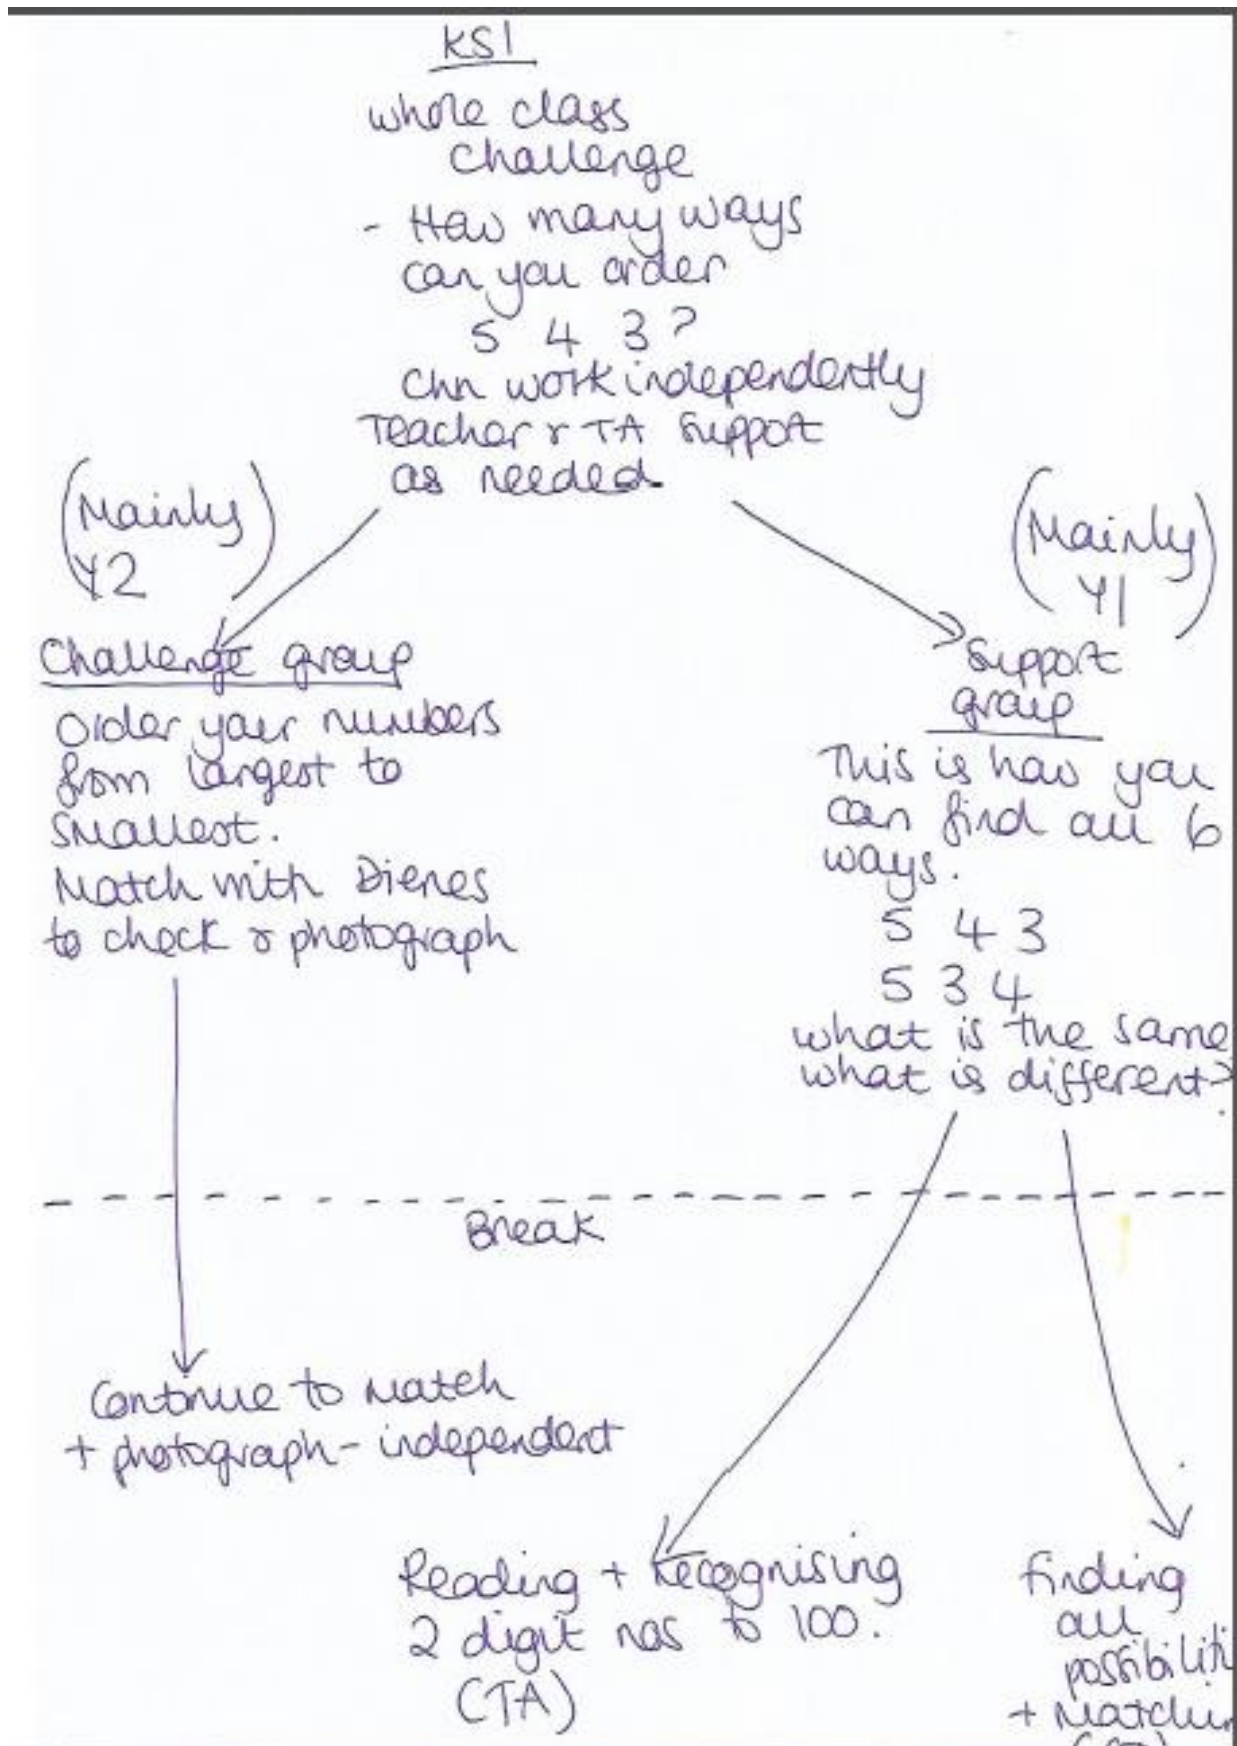 KS1
whole class
challenge
- How many ways
can you order
5 4 3?
Chn work independently
Teacher & TA support
as needed.
(Mainly
Y2)
Challenge group
Order your numbers
from largest to
smallest.
Match with Dienes
to check & photograph
(Mainly
Y1)
Support
group
This is how you
can find all 6
ways.
5 4 3
5 3 4
what is the same
what is different?
Break
Continue to match
+ photograph - independent
Reading + recognising
2 digit nos to 100.
(TA)
finding
all
possibiliti
+ matchin